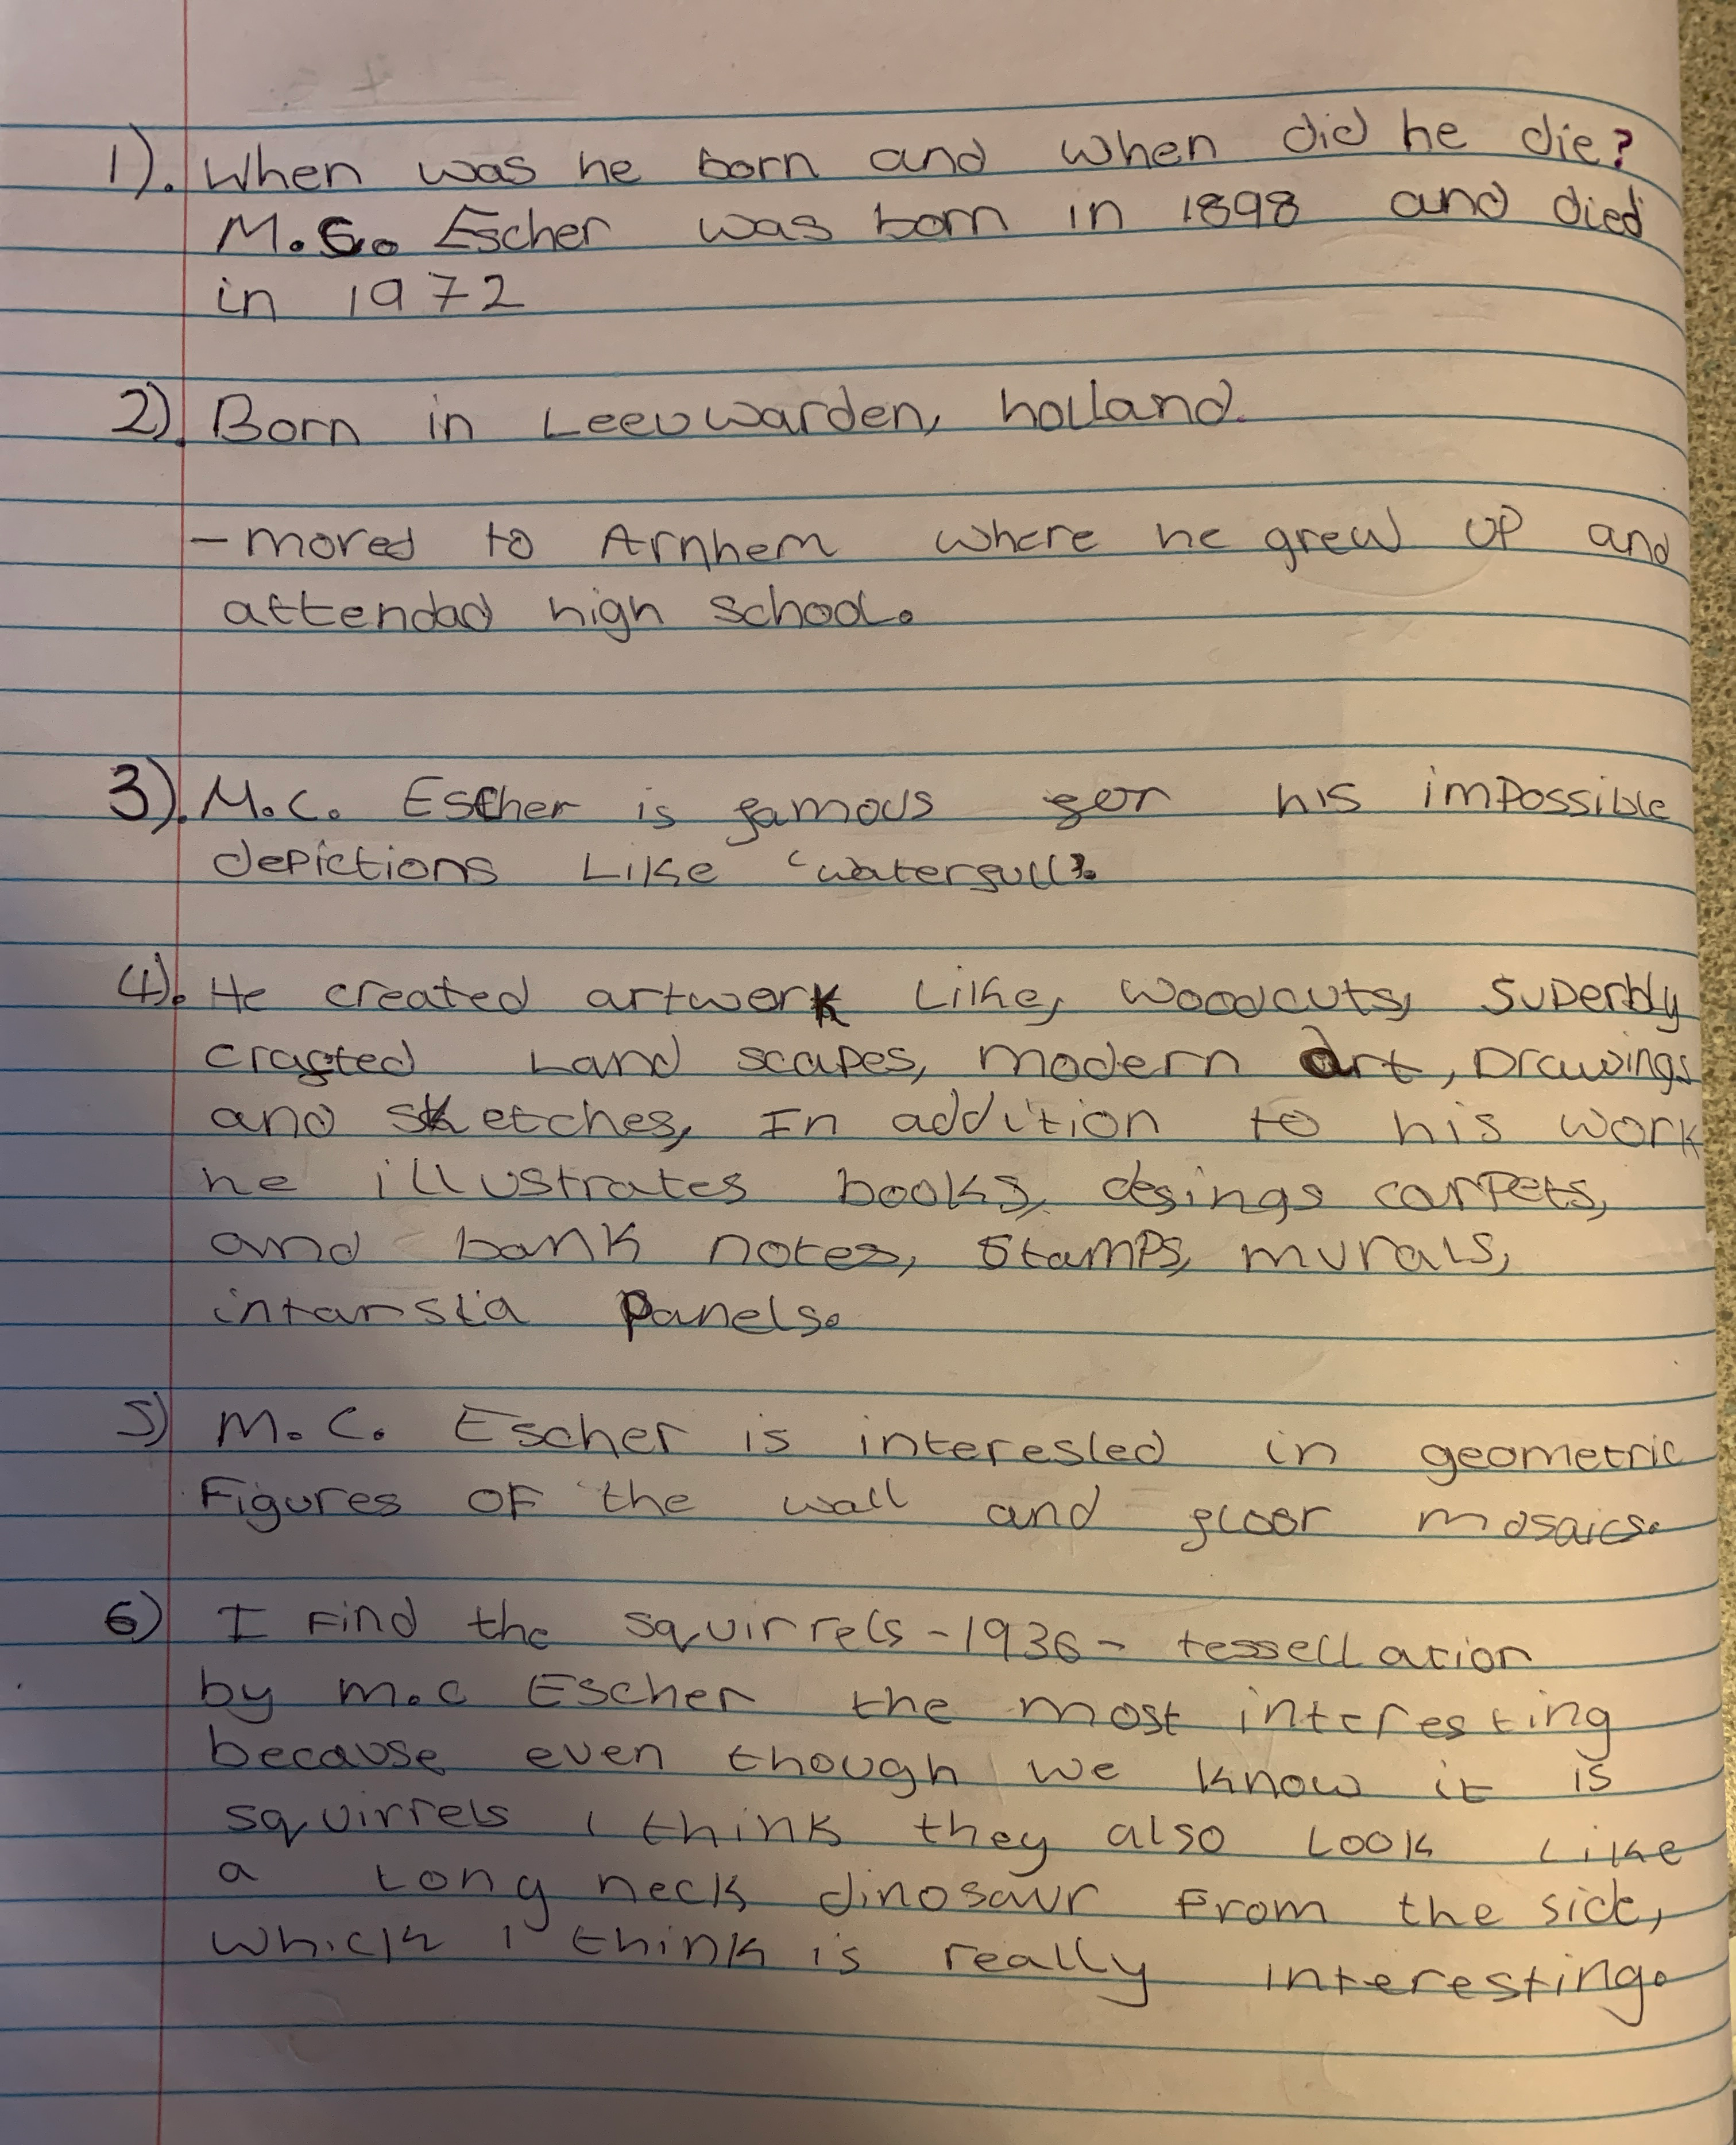 1). When was he born and when did he die?
M.C. Escher was born in 1898 and died
in 1972
2). Born in Leeuwarden, holland.
- moved to Arnhem where he grew up and
attendad high school.
3). M.C. Escher is famous for his impossible
depictions like 'waterfull'.
4). He created artwork like, woodcuts, superbly
crafted land scapes, modern art, Drawings
and sketches, In addition to his work
he illustrates books, desings carpets,
and bank notes, stamps, murals,
intarsia panels.
5) M.C. Escher is interested in geometric
Figures OF the wall and floor mosaics.
6) I Find the squirrels - 1936 - tessellation
by m.c Escher the most interesting
because even though we know it is
squirrels i think they also look like
a long neck dinosaur From the side,
which i think is really interesting.